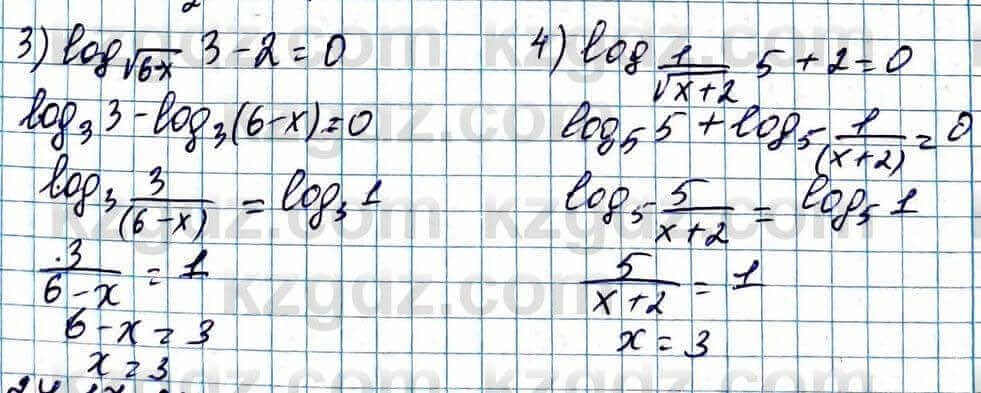 3) log_√(6-x) 3 - 2 = 0
log₃ 3 - log₃(6-x) = 0
log₃ 3/(6-x) = log₃ 1
3/(6-x) = 1
6-x = 3
x = 3
4) log_(1/√(x+2)) 5 + 2 = 0
log₅ 5 + log₅ 1/(x+2) = 0
log₅ 5/(x+2) = log₅ 1
5/(x+2) = 1
x = 3
kzgdz.com